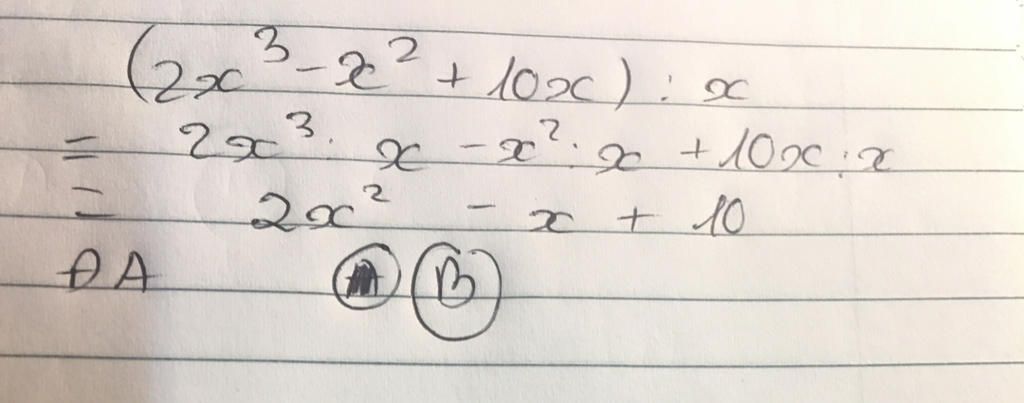 (2x³ - x² + 10x) : x
= 2x³ : x - x² : x + 10x : x
= 2x² - x + 10
ĐA B